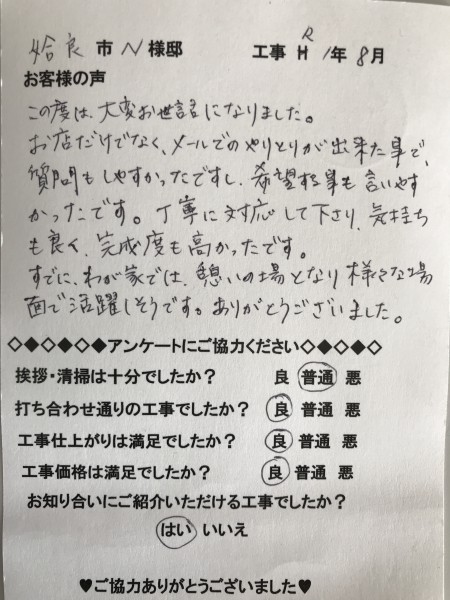 姶良市N様邸 工事 R H 1年8月
お客様の声
この度は、大変お世話になりました。
お店だけでなく、メールでのやりとりが出来た事で、
質問もしやすかったですし、希望する事も言いやす
かったです。丁寧に対応して下さり、気持ち
も良く、完成度も高かったです。
すでに、わが家では、憩いの場となり様々な場
面で活躍しそうです。ありがとうございました。
◇◆◇◆◇◆アンケートにご協力ください◇◆◇◆◇
挨拶・清掃は十分でしたか? 良 普通 悪
打ち合わせ通りの工事でしたか? 良 普通 悪
工事仕上がりは満足でしたか? 良 普通 悪
工事価格は満足でしたか? 良 普通 悪
お知り合いにご紹介いただける工事でしたか?
はい いいえ
♥ご協力ありがとうございました♥